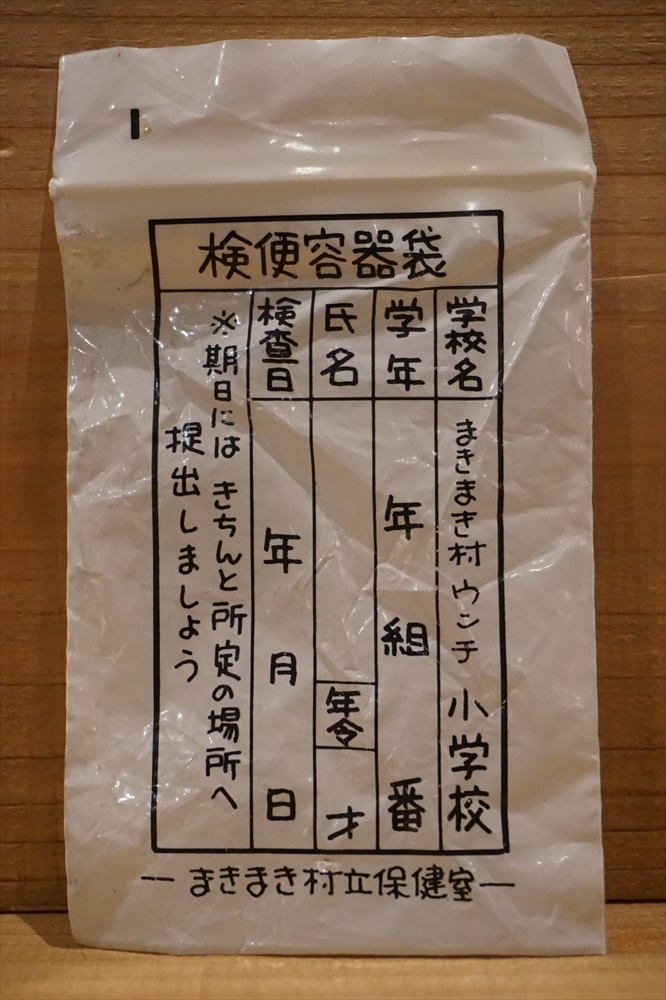 検便容器袋
学校名 まきまき村ウンチ小学校
学年 年 組 番
氏名 年令 才
検査日 年 月 日
※期日には きちんと所定の場所へ
提出しましょう
ー まきまき村立保健室 ー